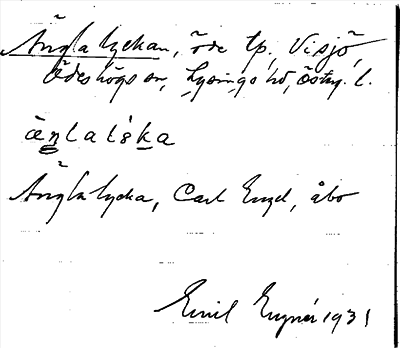 Änglalyckan, öde tp, Visjö,
Ödeshögs sn, Lysings hd, Östg. l.
äŋlalśka
Änglalycka, Carl Engel, åbo
Emil Engnér 1931